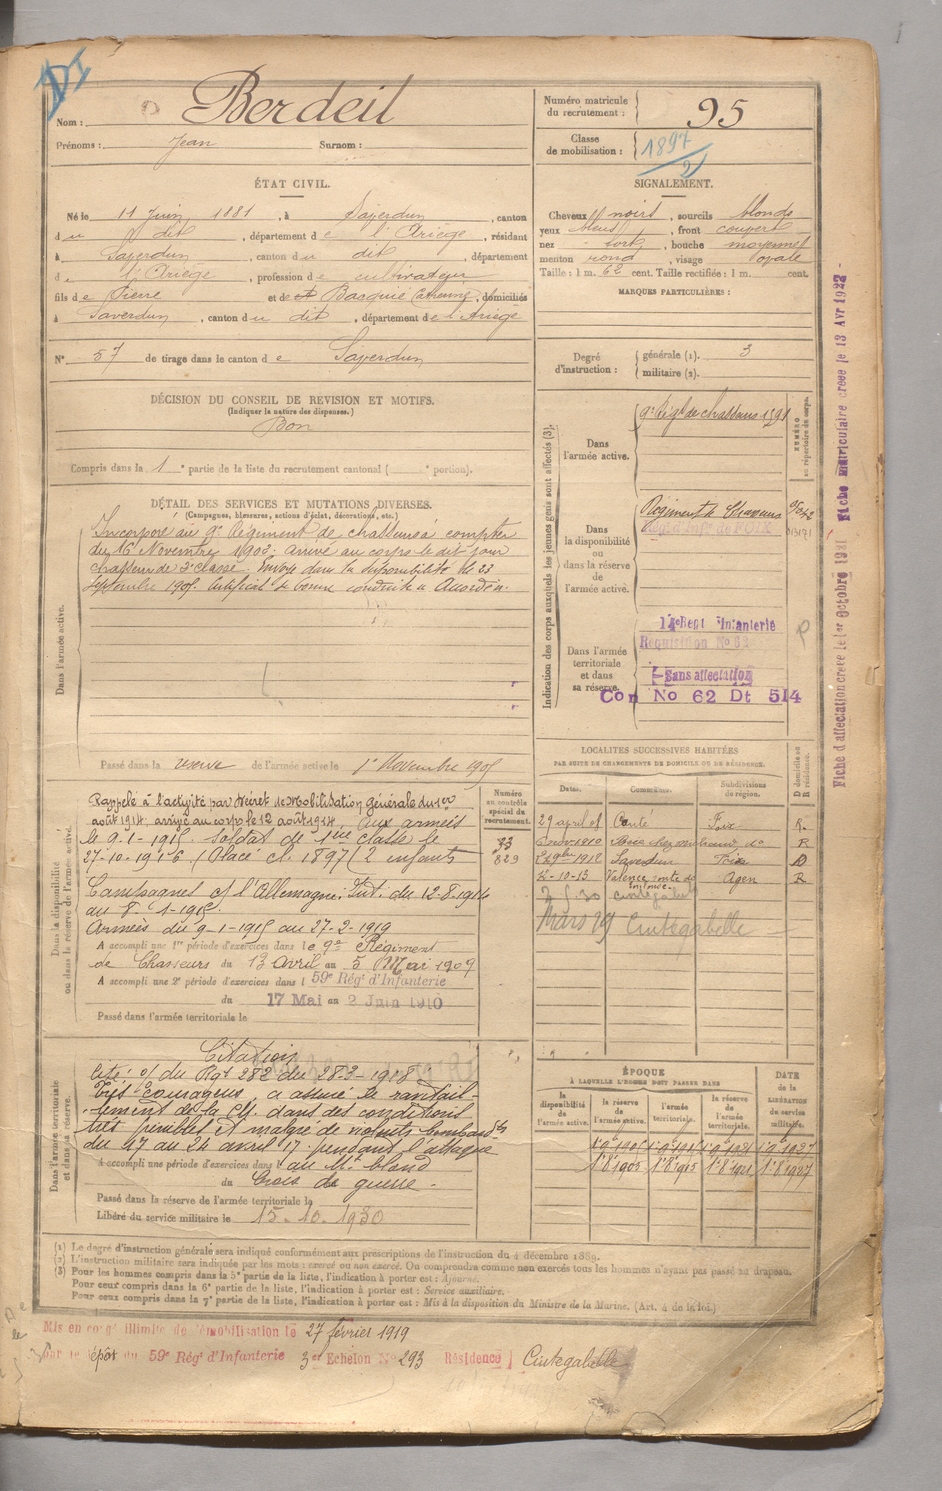 DI
Nom : Berdeil
Prénoms : Jean Surnom :
Numéro matricule du recrutement : 95
Classe de mobilisation : 1897/2
ÉTAT CIVIL.
Né le 11 Juin 1881, à Saverdun, canton
du dit, département de l'Ariège, résidant
à Saverdun, canton du dit, département
de l'Ariège, profession de cultivateur
fils de Pierre et de Basquié Catherine, domiciliés
à Saverdun, canton du dit, département de l'Ariège
N° 57 de tirage dans le canton de Saverdun
SIGNALEMENT.
Cheveux noirs, sourcils blonds
yeux bleus, front couvert
nez fort, bouche moyenne
menton rond, visage ovale
Taille : 1 m. 62 cent. Taille rectifiée : 1 m. cent.
MARQUES PARTICULIÈRES :
Degré d'instruction : générale (1). 3
militaire (2).
DÉCISION DU CONSEIL DE REVISION ET MOTIFS.
(Indiquer la nature des dispenses.)
Bon
Compris dans la 1e partie de la liste du recrutement cantonal ( e portion).
DÉTAIL DES SERVICES ET MUTATIONS DIVERSES.
(Campagnes, blessures, actions d'éclat, décorations, etc.)
Dans l'armée active.
Incorporé au 9e Régiment de chasseurs à compter
du 16 Novembre 1902. arrivé au corps le dit jour
chasseur de 2e classe. Envoyé dans la disponibilité le 23
Septembre 1905. Certificat de bonne conduite « Accordé ».
Passé dans la réserve de l'armée active le 1er Novembre 1905
Indication des corps auxquels les jeunes gens sont affectés (3).
NUMÉRO au répertoire du corps.
Dans l'armée active.
9e Régt de chasseurs
Dans la disponibilité ou dans la réserve de l'armée active.
Régiment de Chasseurs
Dans l'armée territoriale et dans sa réserve.
14e Regt Infanterie
Requisition No
Sans affectation
Con No 62 Dt 514
Fiche d'affectation creee le 1er Octobre 1921 Fiche matriculaire creee le 13 Avr 1922
LOCALITÉS SUCCESSIVES HABITÉES
PAR SUITE DE CHANGEMENTS DE DOMICILE OU DE RÉSIDENCE.
Dates. Communes. Subdivisions de région. D domicile ou R résidence.
29 avril 08 Canté Foix R.
Saverdun Foix D
12-10-13 Valence Agen R
2 5 30 Cintegabelle
Mars 29 Cintegabelle
Dans la disponibilité ou dans la réserve de l'armée active.
Numéro au contrôle spécial du recrutement.
Rappelé à l'activité par Décret de Mobilisation Générale du 1er
août 1914, arrivé au corps le 12 août 1914. aux armées
le 9-1-1915. soldat de 1ère classe le
27-10-1916 (Placé cl. 1897 (2 enfants
Campagne c/ l'Allemagne : Int. du 12-8-1914
au 8-1-1915.
Armées du 9-1-1915 au 27-2-1919
A accompli une 1re période d'exercices dans le 9e Régiment
de Chasseurs du 13 Avril au 5 Mai 1909
A accompli une 2e période d'exercices dans l 59e Régt d'Infanterie
du 17 Mai au 2 Juin 1910
Passé dans l'armée territoriale le
Dans l'armée territoriale et dans sa réserve.
Citation
Cité o/ du Rgt 282 du 28-3-1918 :
Très courageux, a assuré le ravitail-
lement de la Cie dans des conditions
très pénibles et malgré de violents bombardts
du 17 au 24 avril 17 pendant l'attaque
A accompli une période d'exercices dans l au Mt blond
du Croix de guerre.
Passé dans la réserve de l'armée territoriale le
Libéré du service militaire le 15.10.1930
ÉPOQUE
À LAQUELLE L'HOMME DOIT PASSER DANS
DATE de la LIBÉRATION du service militaire.
la disponibilité de l'armée active. la réserve de l'armée active. l'armée territoriale. la réserve de l'armée territoriale.
1.8.1905 1.8.1915 1.8.1921 1.8.1927
(1) Le degré d'instruction générale sera indiqué conformément aux prescriptions de l'instruction du 4 décembre 1889.
(2) L'instruction militaire sera indiquée par les mots : exercé ou non exercé. On comprendra comme non exercés tous les hommes n'ayant pas passé au drapeau.
(3) Pour les hommes compris dans la 5e partie de la liste, l'indication à porter est : Ajourné.
Pour ceux compris dans la 6e partie de la liste, l'indication à porter est : Service auxiliaire.
Pour ceux compris dans la 7e partie de la liste, l'indication à porter est : Mis à la disposition du Ministre de la Marine. (Art. 4 de la loi.)
Mis en congé illimité de démobilisation le 27 février 1919
par le dépôt du 59e Régt d'Infanterie 3e Echelon No 293 Résidence Cintegabelle